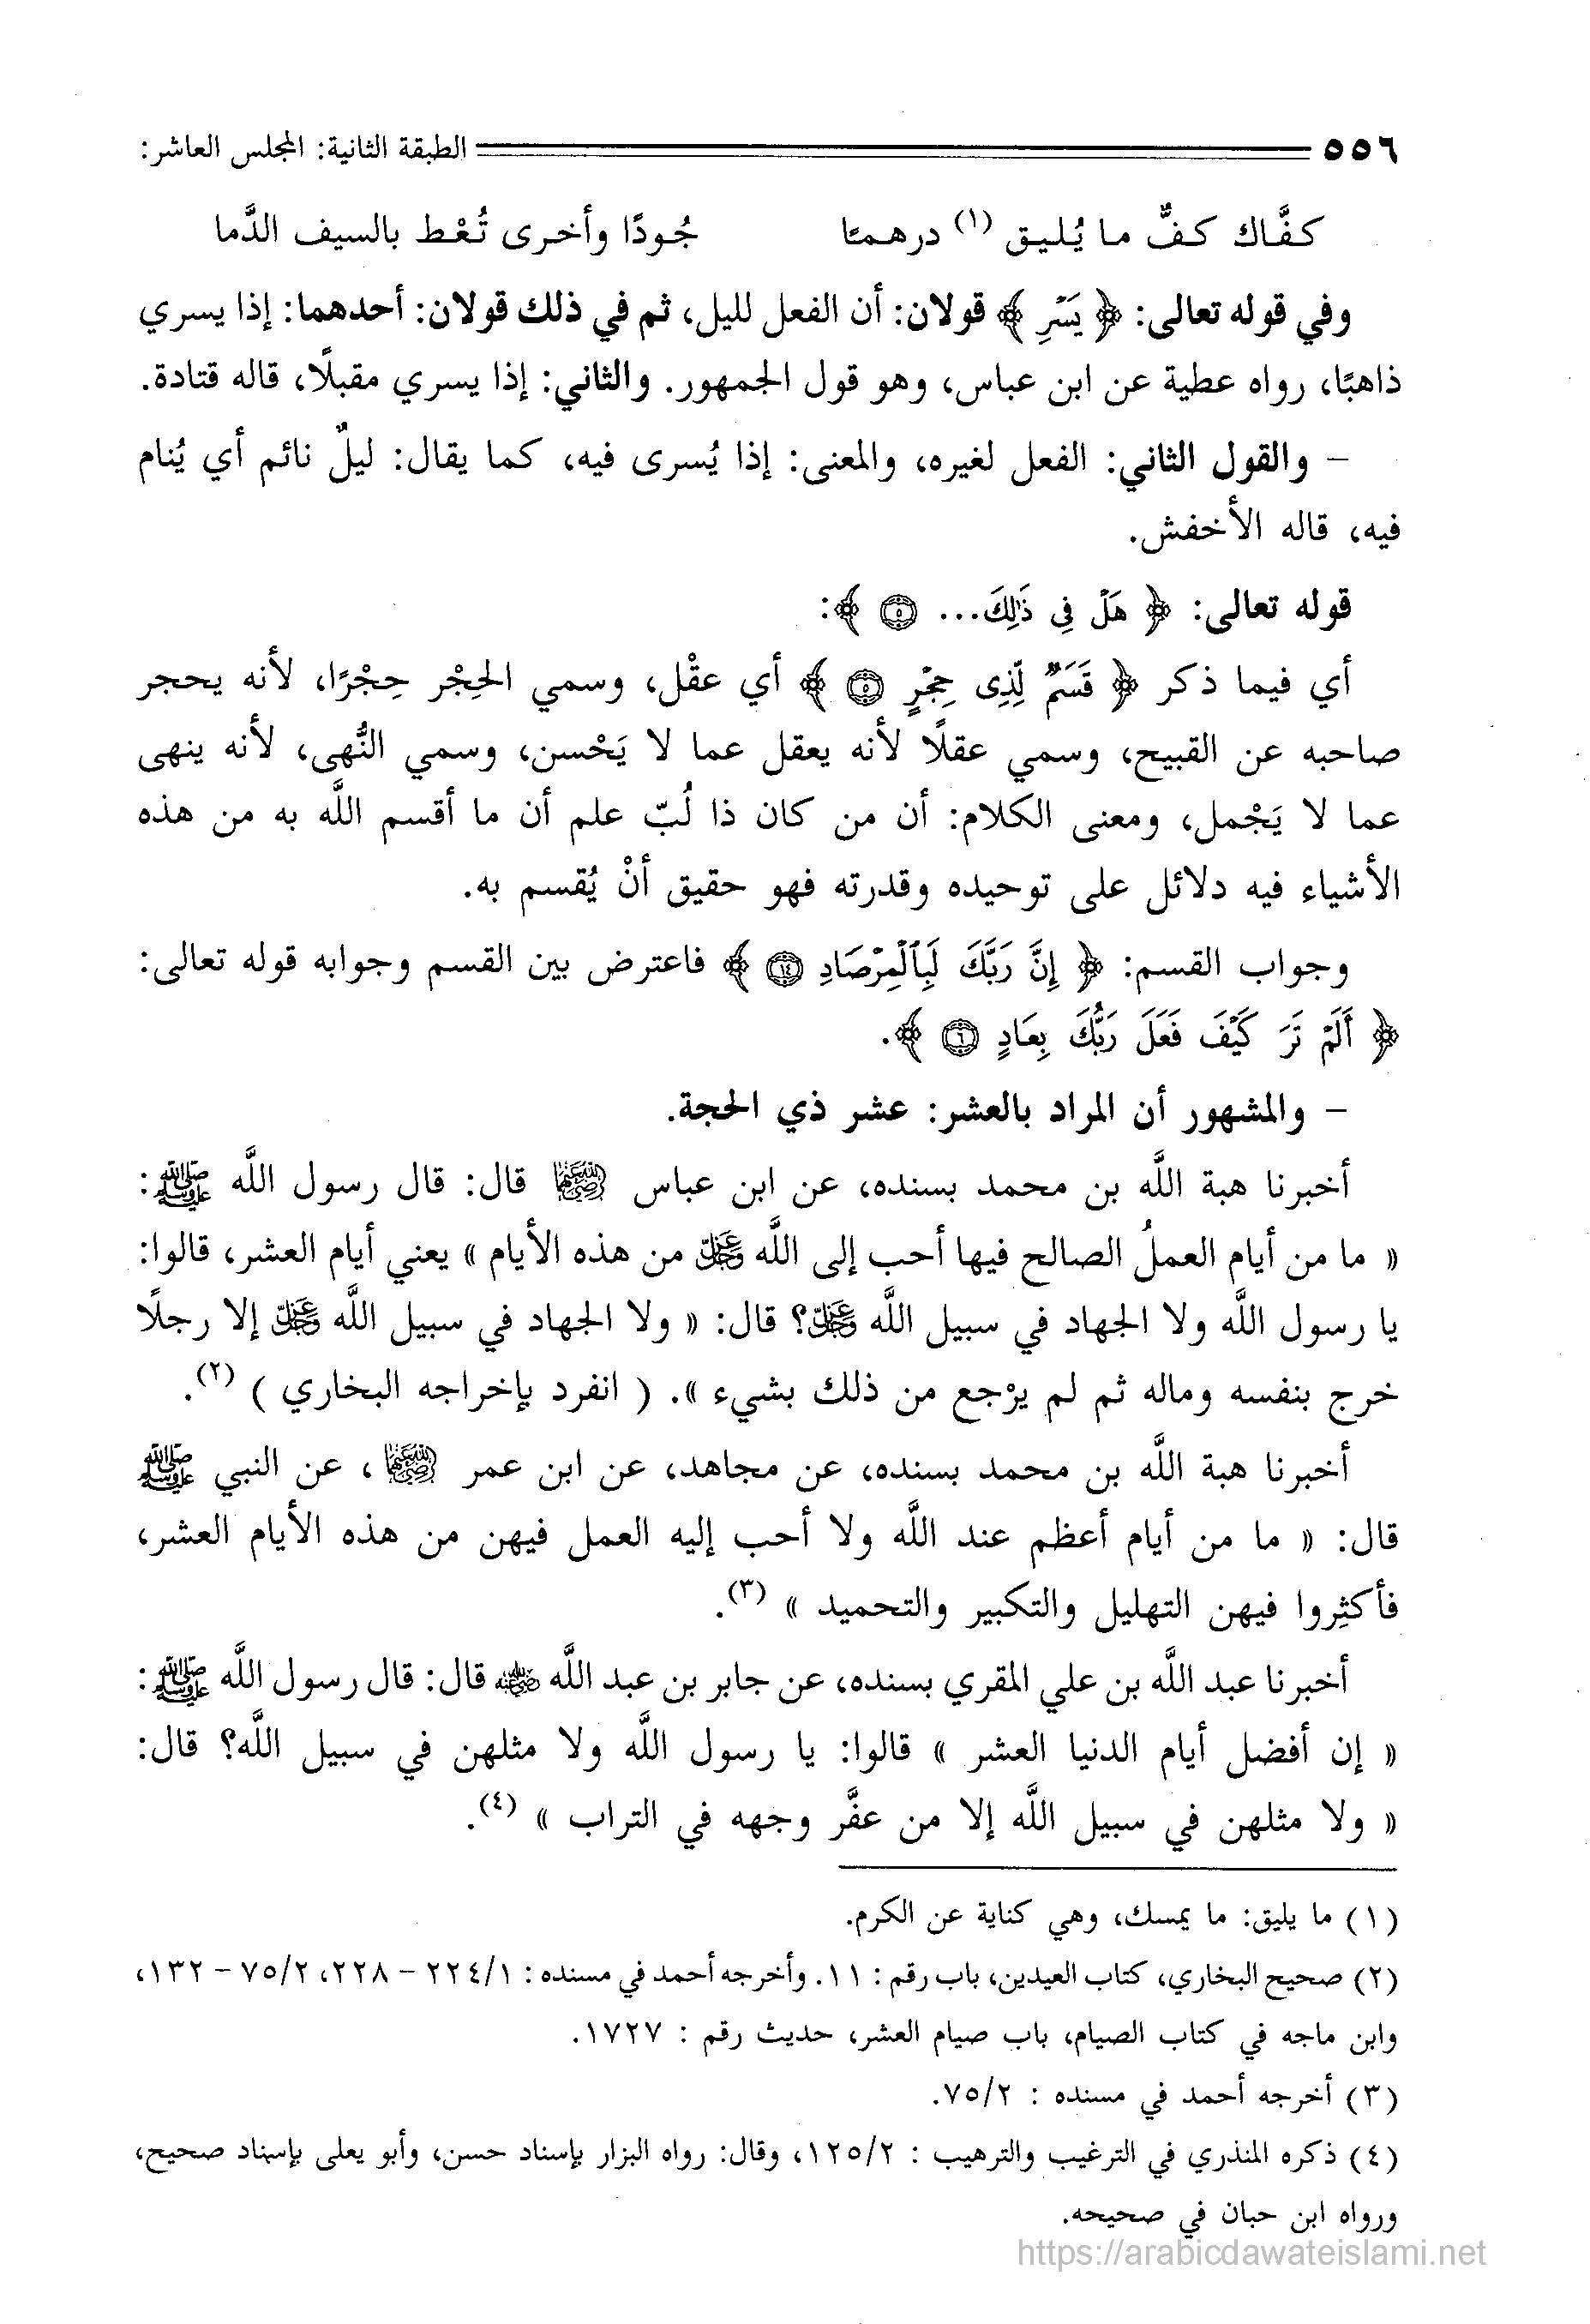 ٥٥٦ الطبقة الثانية: المجلس العاشر:
كفَّاك كفٌّ ما يُليق (١) درهمًا جُودًا وأخرى تُعْط بالسيف الدَّما
وفي قوله تعالى: ﴿ يَسْرِ ﴾ قولان: أن الفعل لليل، ثم في ذلك قولان: أحدهما: إذا يسري
ذاهبًا، رواه عطية عن ابن عباس، وهو قول الجمهور. والثاني: إذا يسري مقبلًا، قاله قتادة.
– والقول الثاني: الفعل لغيره، والمعنى: إذا يُسرى فيه، كما يقال: ليلٌ نائم أي يُنام
فيه، قاله الأخفش.
قوله تعالى: ﴿ هَلْ فِي ذَٰلِكَ... ٥ ﴾:
أي فيما ذكر ﴿ قَسَمٌ لِّذِي حِجْرٍ ٥ ﴾ أي عقْل، وسمي الحِجْر حِجْرًا، لأنه يحجر
صاحبه عن القبيح، وسمي عقلًا لأنه يعقل عما لا يَحْسن، وسمي النُّهى، لأنه ينهى
عما لا يَجْمل، ومعنى الكلام: أن من كان ذا لُبّ علم أن ما أقسم اللَّه به من هذه
الأشياء فيه دلائل على توحيده وقدرته فهو حقيق أنْ يُقسم به.
وجواب القسم: ﴿ إِنَّ رَبَّكَ لَبِالْمِرْصَادِ ١٤ ﴾ فاعترض بين القسم وجوابه قوله تعالى:
﴿ أَلَمْ تَرَ كَيْفَ فَعَلَ رَبُّكَ بِعَادٍ ٦ ﴾.
– والمشهور أن المراد بالعشر: عشر ذي الحجة.
أخبرنا هبة اللَّه بن محمد بسنده، عن ابن عباس رضي الله عنهما قال: قال رسول اللَّه ﷺ:
« ما من أيام العملُ الصالح فيها أحب إلى اللَّه عز وجل من هذه الأيام » يعني أيام العشر، قالوا:
يا رسول اللَّه ولا الجهاد في سبيل اللَّه عز وجل؟ قال: « ولا الجهاد في سبيل اللَّه عز وجل إلا رجلًا
خرج بنفسه وماله ثم لم يرْجع من ذلك بشيء ». ( انفرد بإخراجه البخاري ) (٢).
أخبرنا هبة اللَّه بن محمد بسنده، عن مجاهد، عن ابن عمر رضي الله عنهما، عن النبي ﷺ
قال: « ما من أيام أعظم عند اللَّه ولا أحب إليه العمل فيهن من هذه الأيام العشر،
فأكثِروا فيهن التهليل والتكبير والتحميد » (٣).
أخبرنا عبد اللَّه بن علي المقري بسنده، عن جابر بن عبد اللَّه رضي الله عنه قال: قال رسول اللَّه ﷺ:
« إن أفضل أيام الدنيا العشر » قالوا: يا رسول اللَّه ولا مثلهن في سبيل اللَّه؟ قال:
« ولا مثلهن في سبيل اللَّه إلا من عفَّر وجهه في التراب » (٤).
(١) ما يليق: ما يمسك، وهي كناية عن الكرم.
(٢) صحيح البخاري، كتاب العيدين، باب رقم : ١١. وأخرجه أحمد في مسنده : ٢٢٤/١ – ٢٢٨، ٧٥/٢ – ١٣٢،
وابن ماجه في كتاب الصيام، باب صيام العشر، حديث رقم : ١٧٢٧.
(٣) أخرجه أحمد في مسنده : ٧٥/٢.
(٤) ذكره المنذري في الترغيب والترهيب : ١٢٥/٢، وقال: رواه البزار بإسناد حسن، وأبو يعلى بإسناد صحيح،
ورواه ابن حبان في صحيحه.
https://arabicdawateislami.net